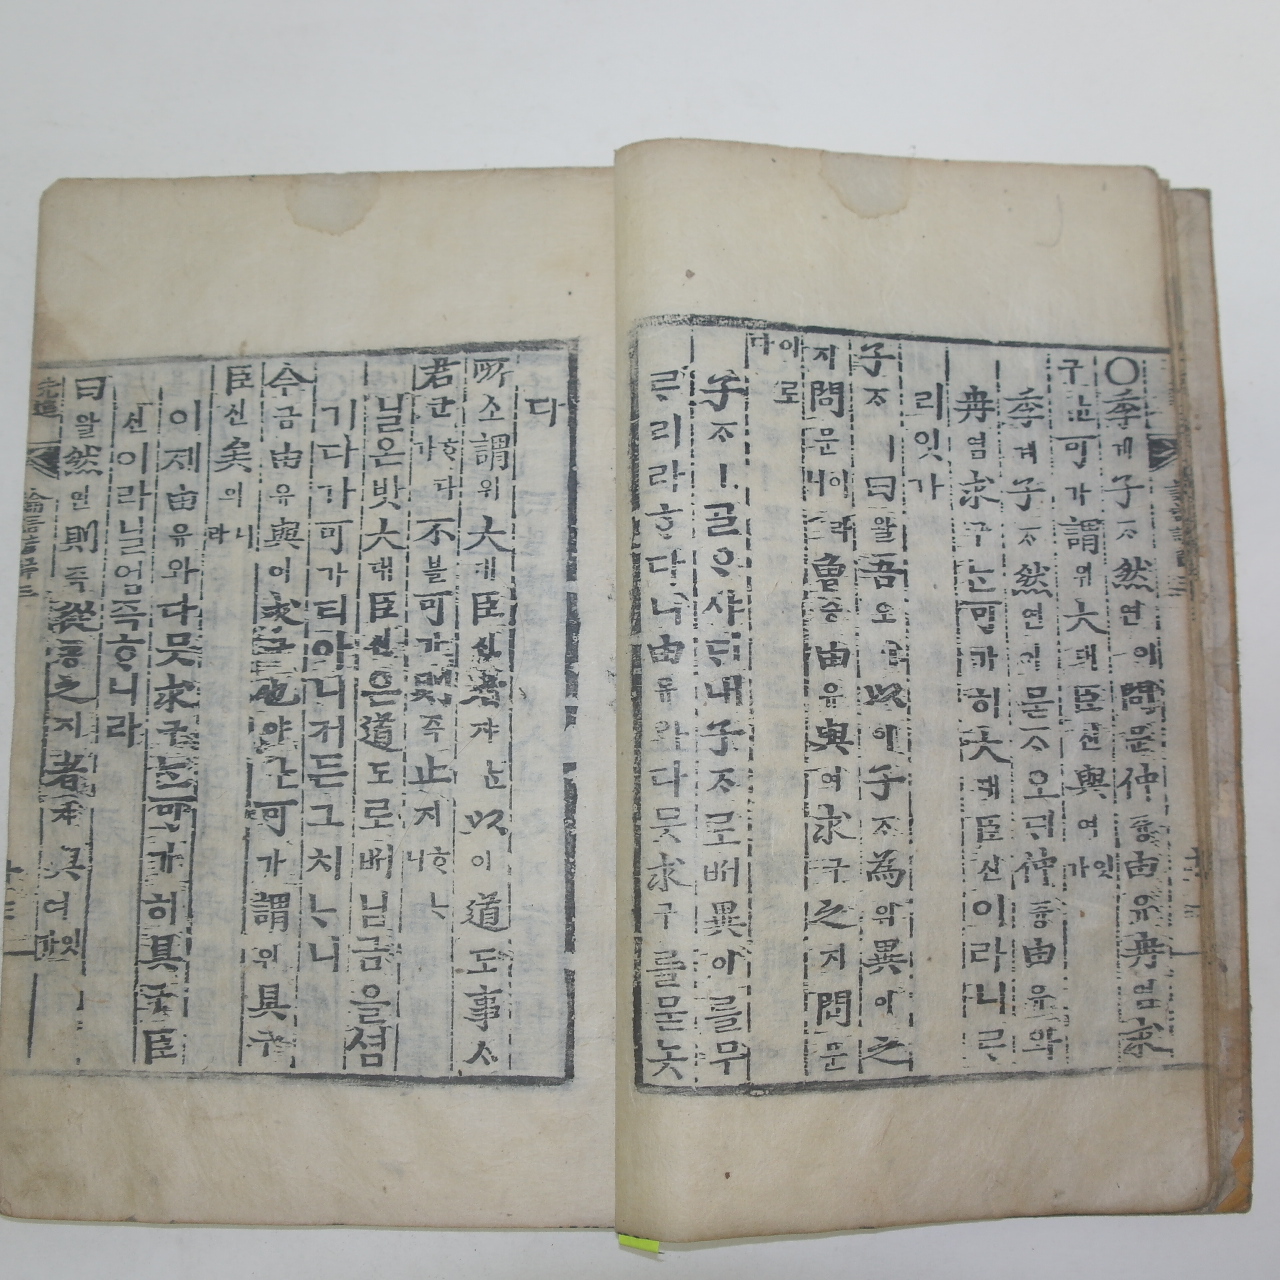 ○季계子ᄌᆞ然연이問문仲듕由유冉염求
구ᄂᆞᆫ可가謂위大대臣신與여잇가
季계子ᄌᆞ然연이묻ᄌᆞ오ᄃᆡ仲듕由유와
冉염求구ᄂᆞᆫ可가히大대臣신이라니ᄅᆞ
리잇가
子ᄌᆞㅣ曰왈吾오ㅣ以이子ᄌᆞ為위異이之
지問문이러니曾증由유與여求구之지問문
이로다
子ᄌᆞㅣ골ᄋᆞ샤ᄃᆡ내子ᄌᆞ로ᄡᅥ異이를무
ᄅᆞ리라ᄒᆞ다니由유와다ᄆᆞᆺ求구를묻놋
다
所소謂위大대臣신者쟈ᄂᆞᆫ以이道도事ᄉᆞ
君군ᄒᆞ다가不불可가則즉止지ᄒᆞᄂᆞ니
닐온밧大대臣신은道도로ᄡᅥ님금을셤
기다가可가티아니커든그치ᄂᆞ니
今금由유與여求구也야ᄂᆞᆫ可가謂위具구
臣신矣의니라
이제由유와다ᄆᆞᆺ求구ᄂᆞᆫ可가히具구臣
신이라닐엄즉ᄒᆞ니라
曰왈然연則즉從종之지者쟈與여잇가
先進
論語諺解三